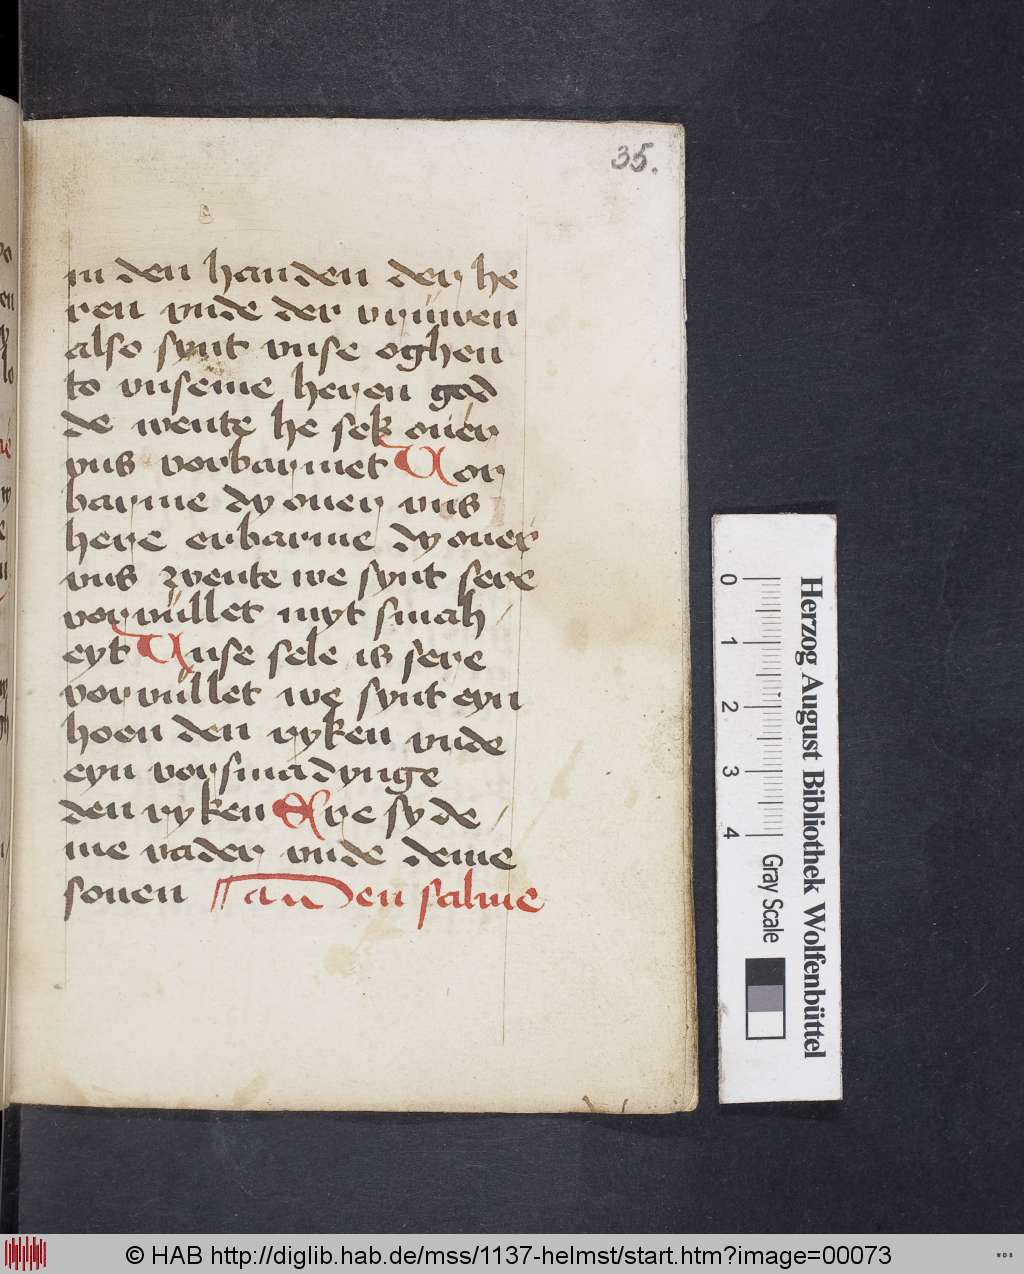 35.
in den handen der he
ren vnde der vruwen
also synt vnse oghen
to vnseme heren god
de wente he sek ouer
vns vorbarmet Vor
barme dy ouer vns
here erbarme dy ouer
vns wente we synt sere
vorvullet myt smah
eyt Vnse sele is sere
vorvullet we synt eyn
hoen den ryken vnde
eyn vorsmadynge
den ryken Ere sy de
me vader vnde deme
sonen an den salme
Herzog August Bibliothek Wolfenbüttel
0 1 2 3 4 Gray Scale
© HAB http://diglib.hab.de/mss/1137-helmst/start.htm?image=00073